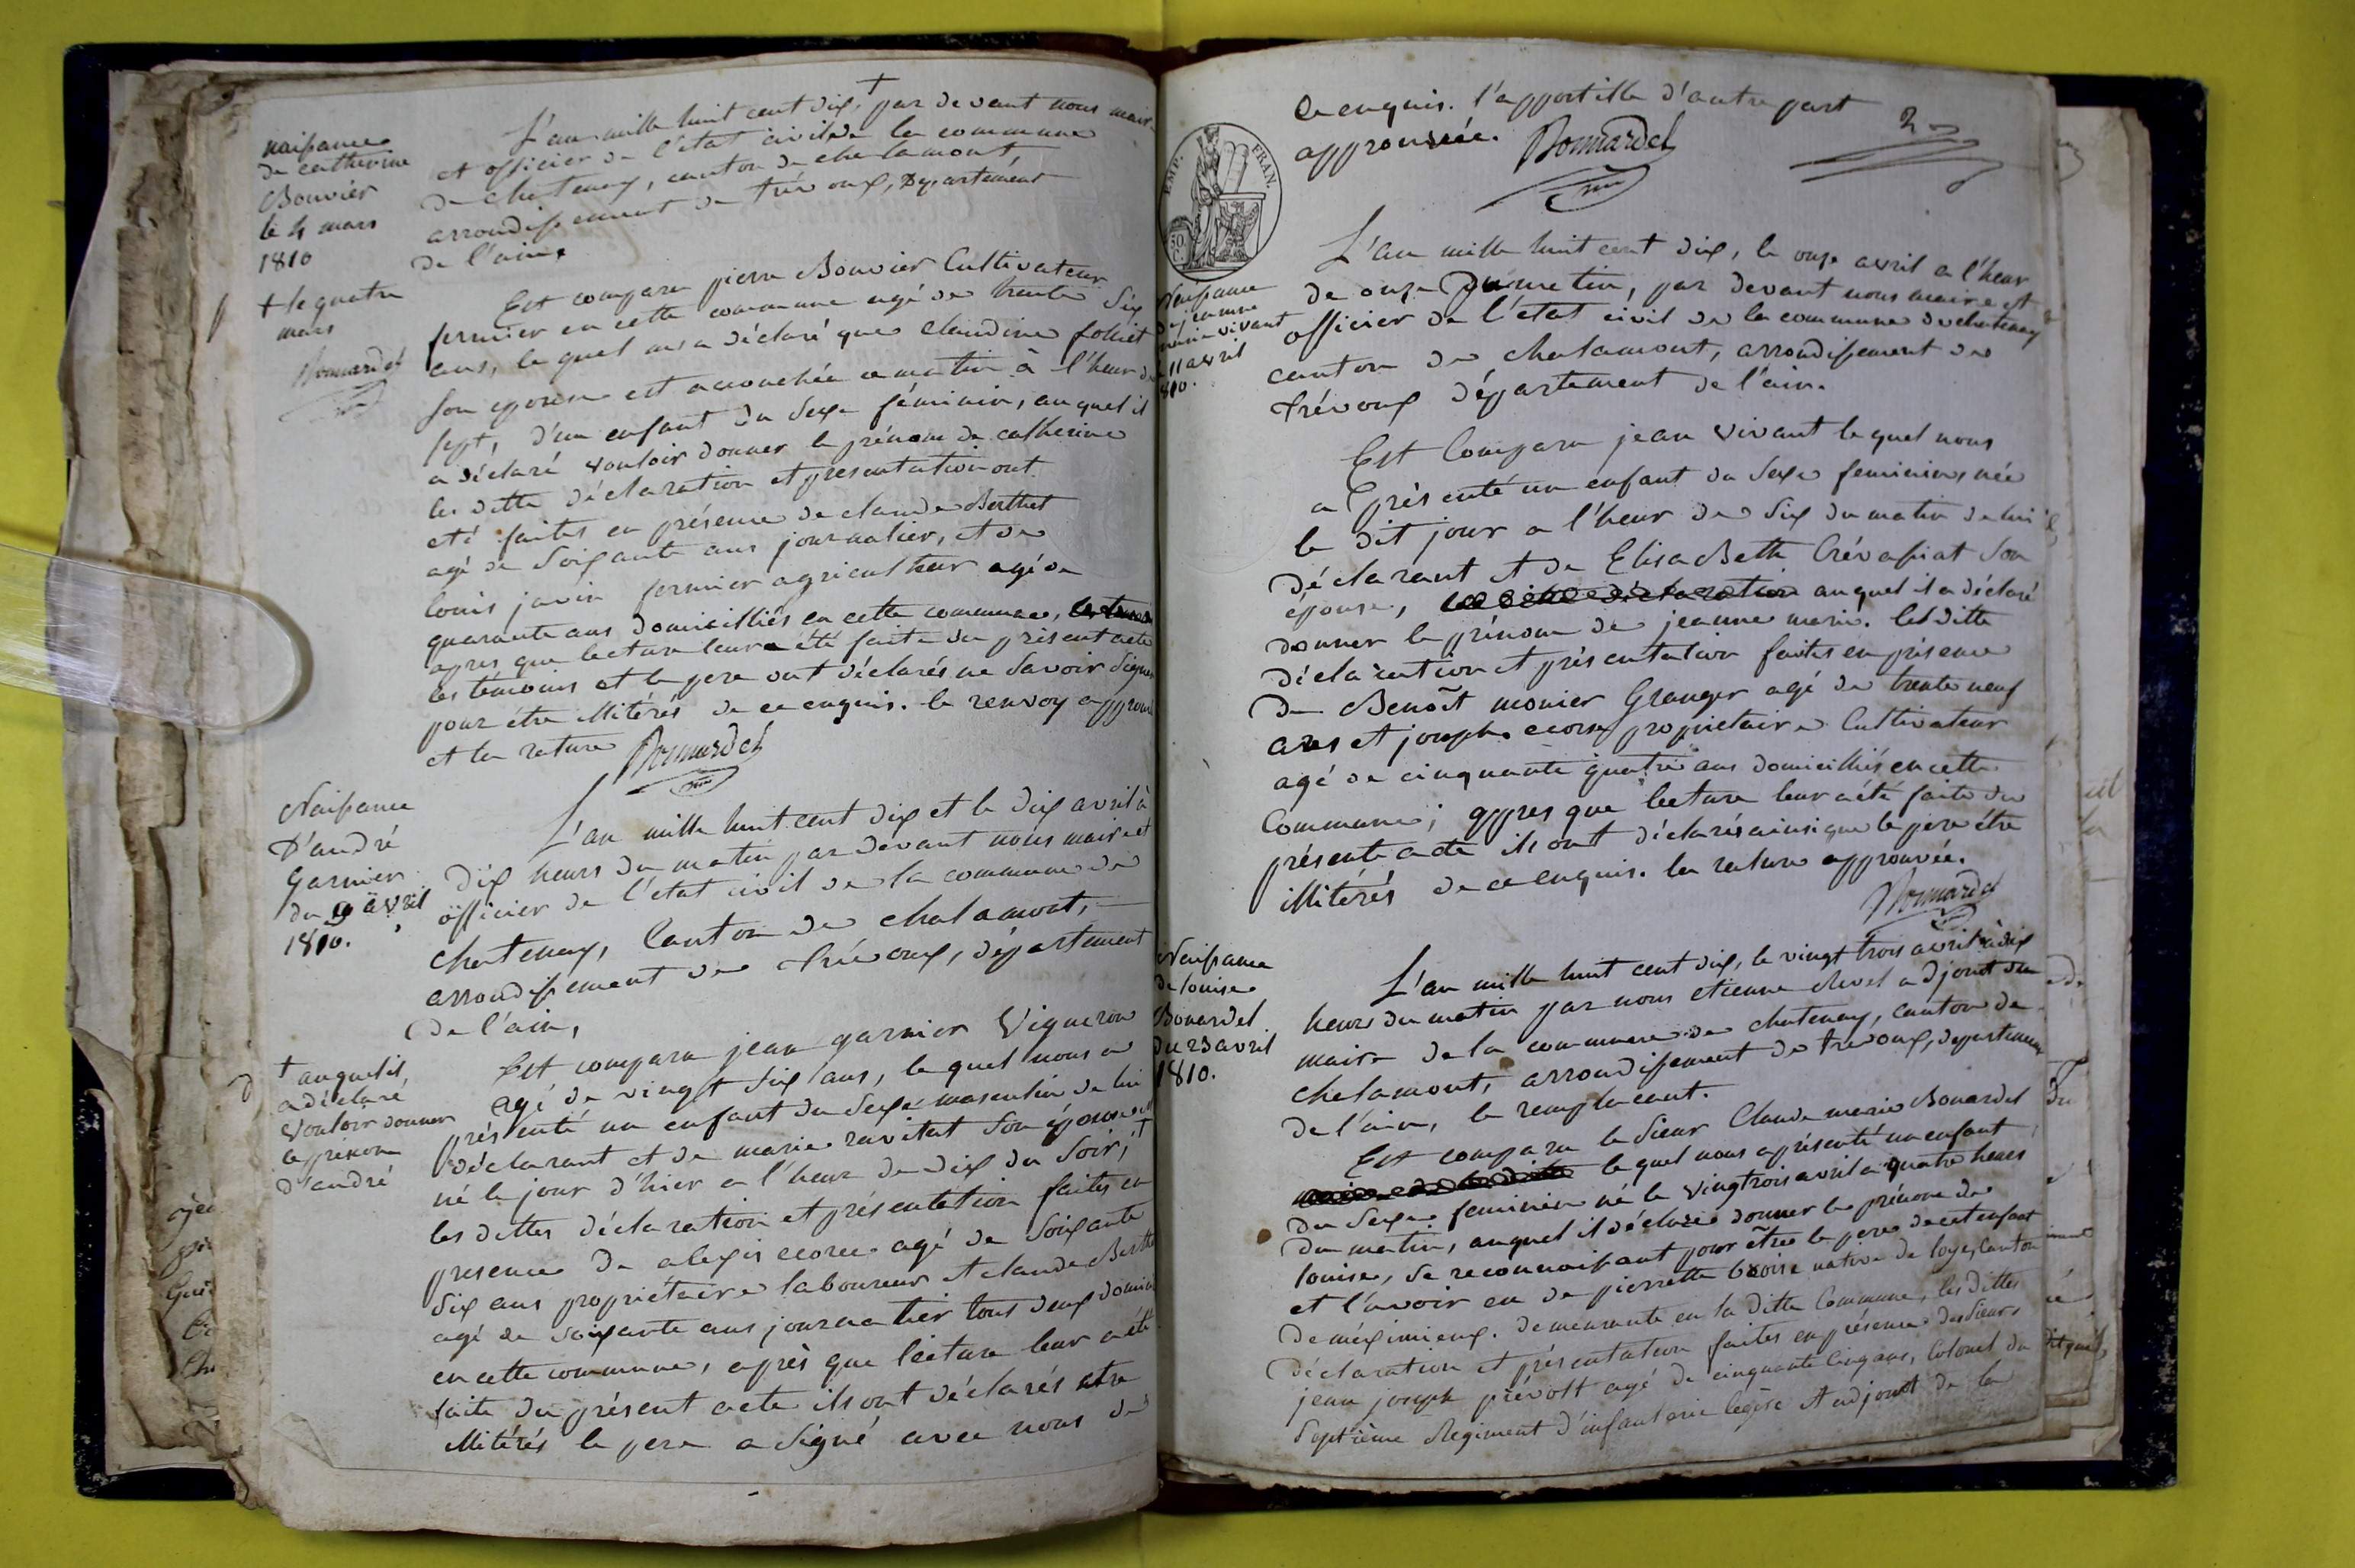 naissance
de catherine
Bouvier
le 4 mars
1810
+ le quatre
mars
Bonnardel
L'an mille huit cent dix, + par devant nous maire
et officier de l'état civil de la commune
de chatenay, canton de chalamont,
arrondissement de trévoux, Département
de l'ain.
Est comparu pierre Bouvier Cultivateur
fermier en cette commune agé de trente Six
ans, le quel nous a déclaré que claudine folliet
son epouse est acouchée ce matin à l'heur de
sept, d'un enfant du Sexe féminin, auquel il
a déclaré vouloir donner le prénom de catherine
les ditte déclaration et presentation ont
eté faites en présence de claude Berthet
agé de Soixante ans journalier, et de
louis javin fermier agriculteur agé de
quarante ans domicilliés en cette commune,
apres que lecture leur a été faite du présent acte
les témoins et le pere ont déclarés ne Savoir Signer
pour être illitérés de ce enquis. le renvoy approuvé
et la rature Bonnardel
Naissance
D'andré
Garnier
du 9 avril
1810.
L'an mille huit cent dix et le dix avril à
dix heurs du matin par dévant nous maire et
officier de l'état civil de la commune de
chatenay, Canton de chalamont,
arrondissement de trévoux, département
de l'ain,
+ auquel il
a déclaré
Vouloir donner
le prénom
d'andré
Est comparu jean garnier Vigneron
agé de vingt Six ans, le quel nous a
présenté un enfant du Sexe masculin de lui
déclarant et de marie ravitat Son épouse
né le jour d'hier a l'heur de dix du Soir, +
les dittes déclaration et présentation faites en
presence de alexis ecorce agé de Soixante
Six ans propriétaire laboureur et claude Berthet
agé de soixante ans journalier tous deux domiciliés
en cette commune, après que lecture leur a été
faite du présent acte ils ont déclarés etre
illitérés le pere a Signé avec nous de
ce enquis. l'appostille d'autre part
approuvée. Bonnardel
2
EMP. FRAN.
50 C.
Naissance
de jeanne
marie vivant
11 avril
1810.
L'an mille huit cent dix, le onze avril a l'heur
de onze du matin, par devant nous maire et
officier de l'état civil de la commune de chatenay
canton de chalamont, arrondissement de
trévoux département de l'ain.
Est Comparu jean Vivant le quel nous
a présenté un enfant du Sexe feminin, née
le dit jour a l'heur de Six du matin de lui
déclarant et de Elisabeth Crévassiat Son
épouse, auquel il a déclaré
donner le prénom de jeanne marie. les ditte
déclaration et présentation faites en présence
de Benoît monier Granger agé de trente neuf
ans et joseph ecorce propriétaire Cultivateur
agé de cinquante quatre ans domicilliés en cette
Commune; appres que lecture leur a été faite du
présent acte ils ont déclarés ainsi que le pere être
illitérés de ce enquis. la rature approuvée.
Bonnardel
Naissance
de louise
Bonardel
du 23 avril
1810.
L'an mille huit cent dix, le vingt trois avril à dix
heurs du matin par nous etienne chevel adjoint du
maire de la commune de chatenay, canton de
chalamont, arrondissement de trévoux, departement
de l'ain, le remplacant.
Est comparu le Sieur Claude marie Bonardel
le quel nous a présenté un enfant
du Sexe feminin né le vingt trois avril a quatre heures
du matin, auquel il déclare donner le prénom de
louise, Se reconnoissant pour être le pere de cet enfant
et l'avoir eu de pierrette Groise native de loyes, Canton
deméximieux. demeurante en la ditte Commune, les dittes
déclaration et présentation faites en présence des Sieurs
jean joseph prévost agé de cinquante Cinq ans, Colonel du
Septième Régiment d'infanterie legère et adjoint de la